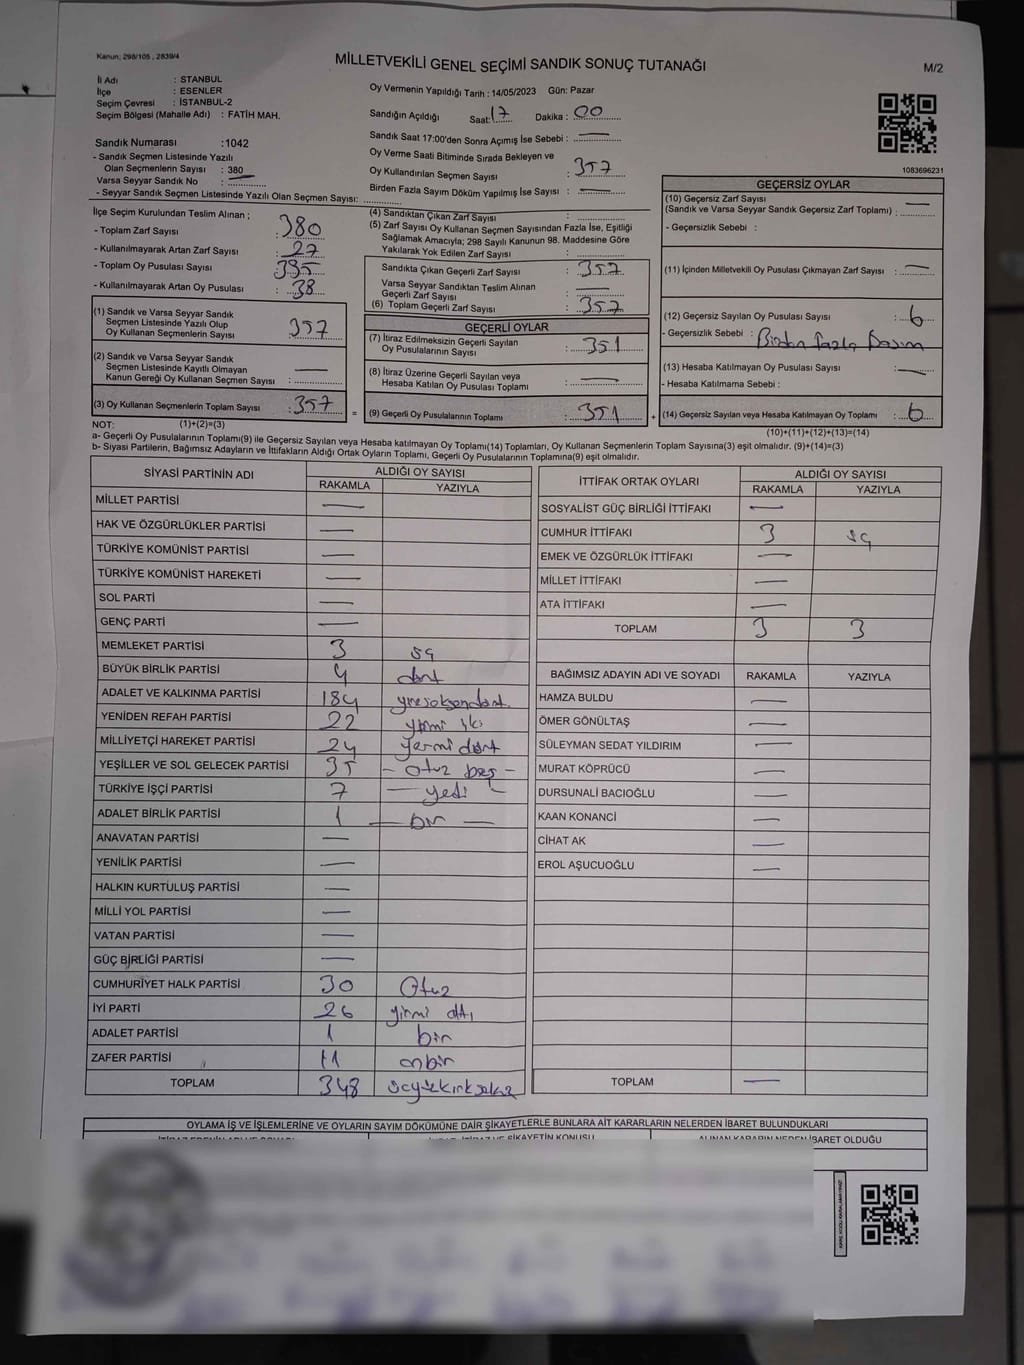 Kanun: 298/105 , 2839/4
MİLLETVEKİLİ GENEL SEÇİMİ SANDIK SONUÇ TUTANAĞI
M/2
İl Adı : STANBUL
İlçe : ESENLER
Seçim Çevresi : İSTANBUL-2
Seçim Bölgesi (Mahalle Adı) : FATİH MAH.
Oy Vermenin Yapıldığı Tarih : 14/05/2023 Gün: Pazar
Sandığın Açıldığı Saat: 17 Dakika : 00
Sandık Saat 17:00'den Sonra Açımış İse Sebebi : —
Oy Verme Saati Bitiminde Sırada Bekleyen ve
Oy Kullandırılan Seçmen Sayısı : 357
Birden Fazla Sayım Döküm Yapılmış İse Sayısı : —
1083696231
Sandık Numarası :1042
- Sandık Seçmen Listesinde Yazılı
Olan Seçmenlerin Sayısı : 380
Varsa Seyyar Sandık No : —
- Seyyar Sandık Seçmen Listesinde Yazılı Olan Seçmen Sayısı:
İlçe Seçim Kurulundan Teslim Alınan ;
- Toplam Zarf Sayısı : 380
- Kullanılmayarak Artan Zarf Sayısı : 27
- Toplam Oy Pusulası Sayısı : 395
- Kullanılmayarak Artan Oy Pusulası : 38
(1) Sandık ve Varsa Seyyar Sandık
Seçmen Listesinde Yazılı Olup
Oy Kullanan Seçmenlerin Sayısı : 357
(2) Sandık ve Varsa Seyyar Sandık
Seçmen Listesinde Kayıtlı Olmayan
Kanun Gereği Oy Kullanan Seçmen Sayısı : —
(3) Oy Kullanan Seçmenlerin Toplam Sayısı : 357
(1)+(2)=(3)
(4) Sandıktan Çıkan Zarf Sayısı :
(5) Zarf Sayısı Oy Kullanan Seçmen Sayısından Fazla İse, Eşitliği
Sağlamak Amacıyla; 298 Sayılı Kanunun 98. Maddesine Göre
Yakılarak Yok Edilen Zarf Sayısı :
Sandıkta Çıkan Geçerli Zarf Sayısı : 357
Varsa Seyyar Sandıktan Teslim Alınan
Geçerli Zarf Sayısı : —
(6) Toplam Geçerli Zarf Sayısı : 357
GEÇERLİ OYLAR
(7) İtiraz Edilmeksizin Geçerli Sayılan
Oy Pusulalarının Sayısı : 351
(8) İtiraz Üzerine Geçerli Sayılan veya
Hesaba Katılan Oy Pusulası Toplamı : —
= (9) Geçerli Oy Pusulalarının Toplamı : 351
GEÇERSİZ OYLAR
(10) Geçersiz Zarf Sayısı
(Sandık ve Varsa Seyyar Sandık Geçersiz Zarf Toplamı) : —
- Geçersizlik Sebebi :
(11) İçinden Milletvekili Oy Pusulası Çıkmayan Zarf Sayısı : —
(12) Geçersiz Sayılan Oy Pusulası Sayısı : 6
- Geçersizlik Sebebi : Birden fazla Basım
(13) Hesaba Katılmayan Oy Pusulası Sayısı : —
- Hesaba Katılmama Sebebi :
+ (14) Geçersiz Sayılan veya Hesaba Katılmayan Oy Toplamı : 6
(10)+(11)+(12)+(13)=(14)
NOT:
a- Geçerli Oy Pusulalarının Toplamı(9) ile Geçersiz Sayılan veya Hesaba katılmayan Oy Toplamı(14) Toplamları, Oy Kullanan Seçmenlerin Toplam Sayısına(3) eşit olmalıdır. (9)+(14)=(3)
b- Siyasi Partilerin, Bağımsız Adayların ve İttifakların Aldığı Ortak Oyların Toplamı, Geçerli Oy Pusulalarının Toplamına(9) eşit olmalıdır.
SİYASİ PARTİNİN ADI ALDIĞI OY SAYISI
RAKAMLA YAZIYLA
MİLLET PARTİSİ —
HAK VE ÖZGÜRLÜKLER PARTİSİ —
TÜRKİYE KOMÜNİST PARTİSİ —
TÜRKİYE KOMÜNİST HAREKETİ —
SOL PARTİ —
GENÇ PARTİ —
MEMLEKET PARTİSİ 3
BÜYÜK BİRLİK PARTİSİ 4 dört
ADALET VE KALKINMA PARTİSİ 184
YENİDEN REFAH PARTİSİ 22 yirmi iki
MİLLİYETÇİ HAREKET PARTİSİ 24 yermi dört
YEŞİLLER VE SOL GELECEK PARTİSİ 35 - otuz beş -
TÜRKİYE İŞÇİ PARTİSİ 7 — yedi —
ADALET BİRLİK PARTİSİ 1 — bir —
ANAVATAN PARTİSİ —
YENİLİK PARTİSİ —
HALKIN KURTULUŞ PARTİSİ —
MİLLİ YOL PARTİSİ —
VATAN PARTİSİ —
GÜÇ BİRLİĞİ PARTİSİ —
CUMHURİYET HALK PARTİSİ 30 Otuz
İYİ PARTİ 26 yirmi altı
ADALET PARTİSİ 1 bir
ZAFER PARTİSİ 11 onbir
TOPLAM 348
İTTİFAK ORTAK OYLARI ALDIĞI OY SAYISI
RAKAMLA YAZIYLA
SOSYALİST GÜÇ BİRLİĞİ İTTİFAKI —
CUMHUR İTTİFAKI 3
EMEK VE ÖZGÜRLÜK İTTİFAKI —
MİLLET İTTİFAKI —
ATA İTTİFAKI —
TOPLAM 3 3
BAĞIMSIZ ADAYIN ADI VE SOYADI RAKAMLA YAZIYLA
HAMZA BULDU —
ÖMER GÖNÜLTAŞ —
SÜLEYMAN SEDAT YILDIRIM —
MURAT KÖPRÜCÜ —
DURSUNALİ BACIOĞLU —
KAAN KONANCİ —
CİHAT AK —
EROL AŞUCUOĞLU —
TOPLAM —
OYLAMA İŞ VE İŞLEMLERİNE VE OYLARIN SAYIM DÖKÜMÜNE DAİR ŞİKAYETLERLE BUNLARA AİT KARARLARIN NELERDEN İBARET BULUNDUKLARI